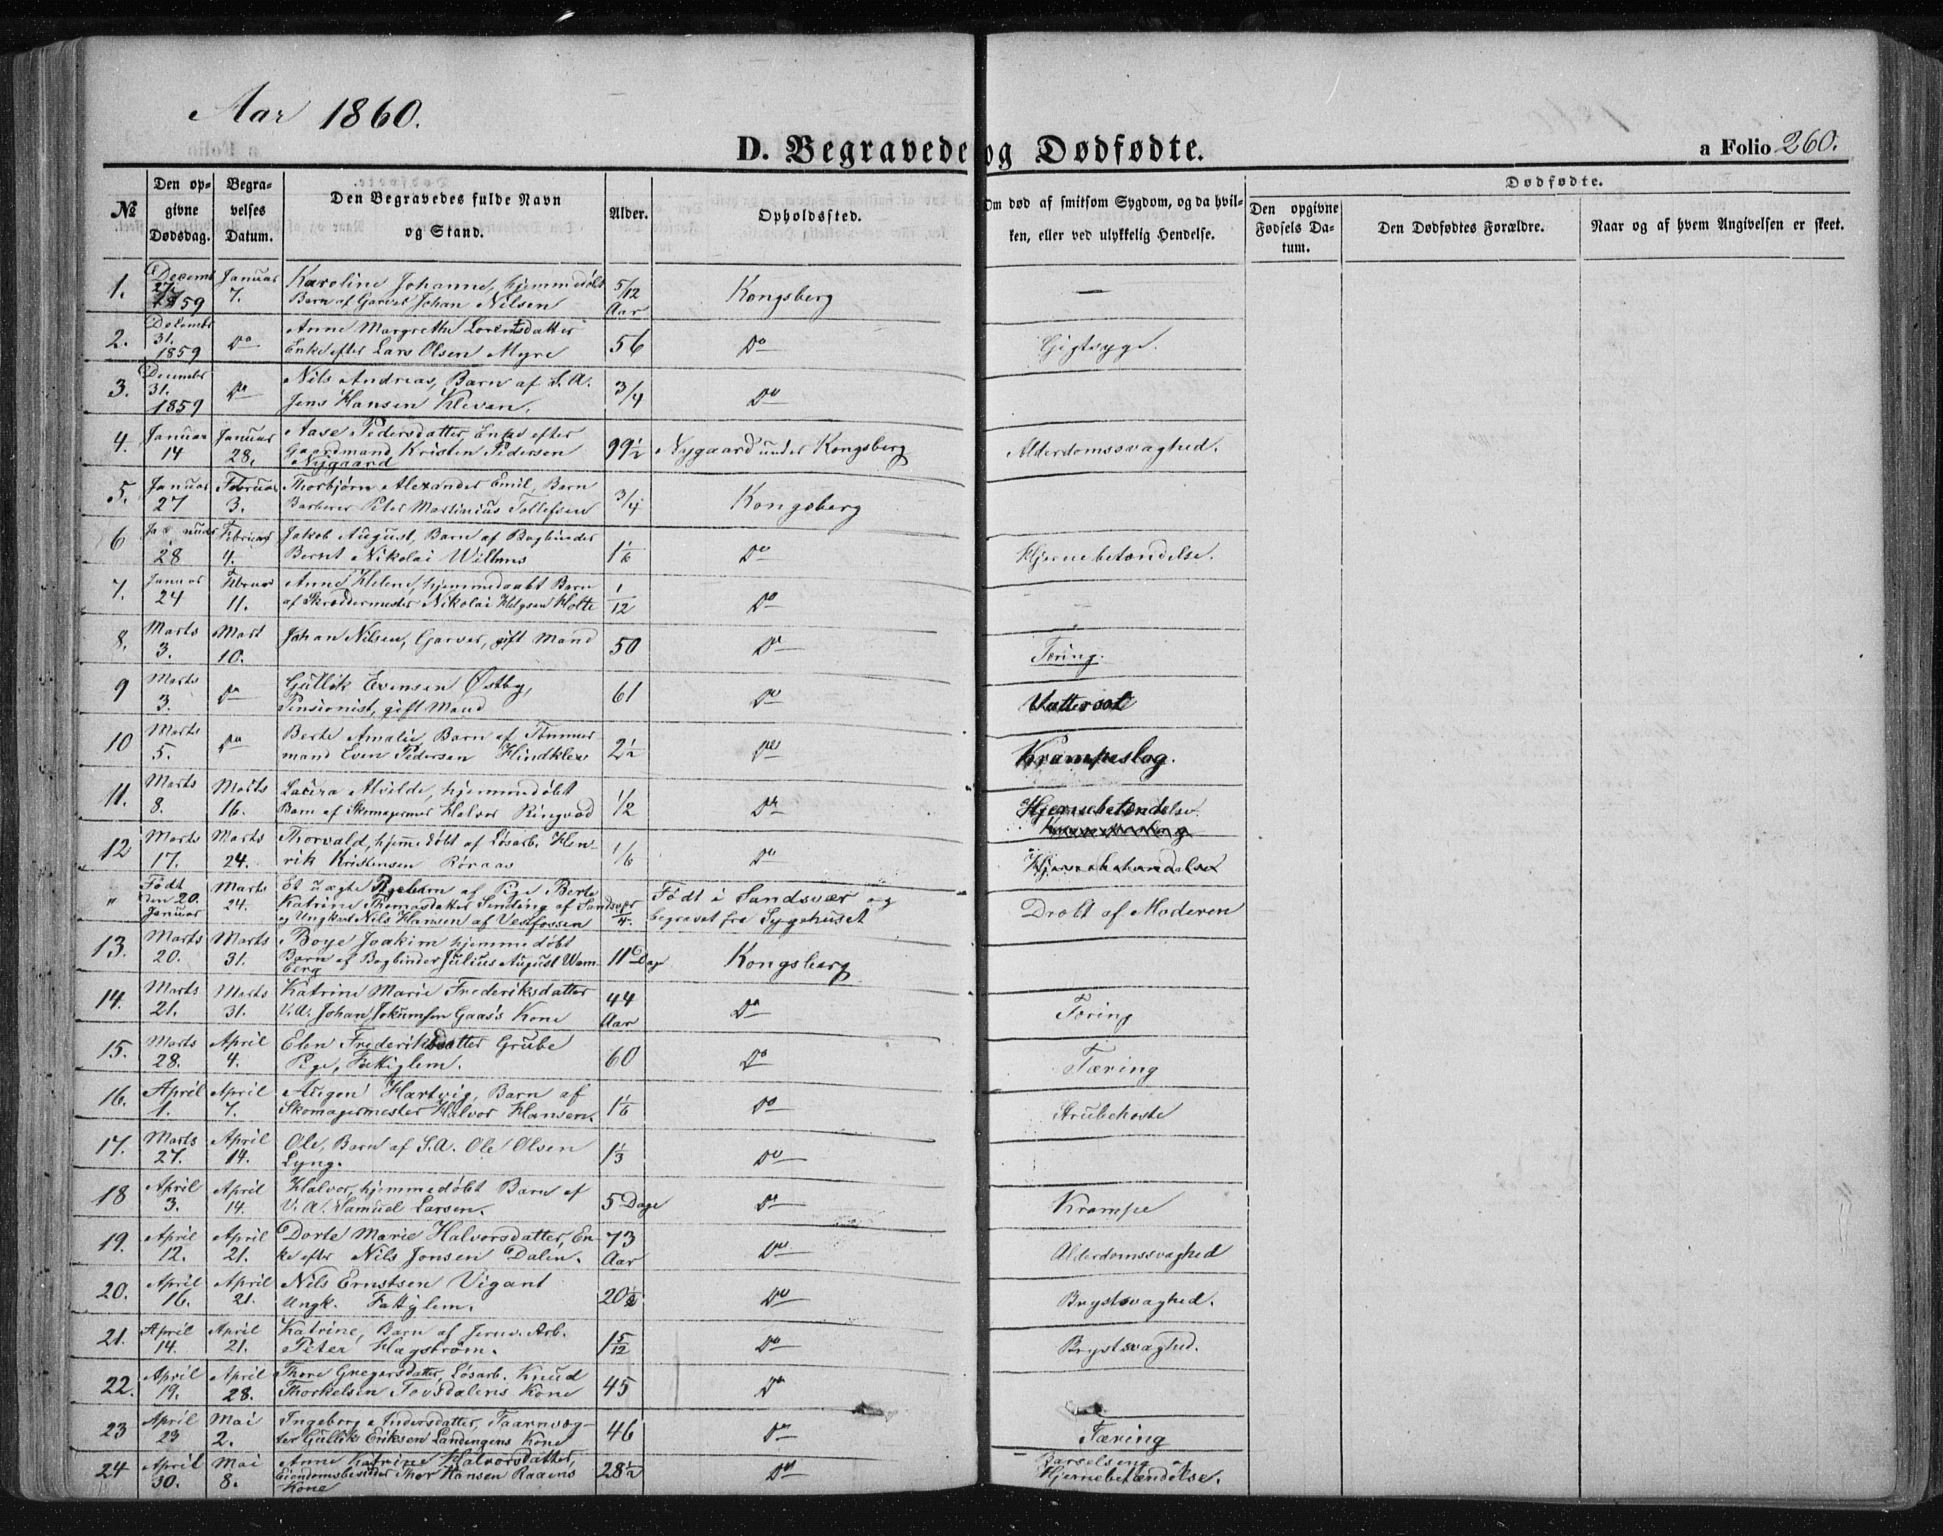 Aar 1860.
D. Begravede og Dødfødte.
a Folio 260.
№
Den opgivne Dødsdag.
Begravelses Datum.
Den Begravedes fulde Navn og Stand.
Alder.
Opholdssted.
Om død af smitsom Sygdom, og da hvilken, eller ved ulykkelig Hendelse.
Dødfødte.
Den opgivne Fødsels Datum.
Den Dødfødtes Forældre.
Naar og af hvem Angivelsen er skeet.
1. Decemb 27 1859 Januar 7. Karoline Johanne, hjemmedøbt 5/12 Aar Kongsberg —
Barn af Garver Johan Nilsen
2. Decembr 31. 1859 Do Anne Margrethe Lorentsdatter 56 Do Gigtsyge.
Enke efter Lars Olsen Myre
3. Decembr 31. 1859 Do Nils Andreas, Barn af S. A. 3/4 Do
Jens Hansen Klevan.
4. Januar 14 Januar 28. Aase Pedersdatter, Enke efter 99 1/2 Nygaard under Kongsberg Alderdomssvaghed.
Gaardmand Kristen Pedersen
Nygaard
5. Januar 27 Februar 3. Thorbjørn Alexander Emil, Barn 3/4 Kongsberg
Barberer Peter Martinius Tollefsen
6 Januar 28 Februar 4. Jakob August, Barn af Bogbinder 1 1/6 Do Hjernebetændelse.
Bernt Nikolai Willums
7. Januar 24 Februar 11. Anne Helene, hjemmedøbt Barn 1/12 Do
af Skrædermester Nikolai Helgsen Holte
8. Marts 3. Mart 10. Johan Nilsen, Garver, gift Mand 50 Do Tæring.
9 Marts 3. Do Gullik Evensen Østby, 61 Do Vattersot
Pensionist, gift Mand
10 Marts 5. Do Berte Amalie, Barn af Tømmer 2 1/2 Do Krampeslag.
mand Even Pedersen Hindklev
11. Marts 8. Marts 16. Laura Alvilde, hjemmedøbt 1/2 Do Hjernebetændelse.
Barn af Skomagermes Halvor Ringvod
12 Marts 17. Marts 24. Thorvald, hjemedøbt af Løsarb. Hen- 1/6 Do Hjernebetændelse
rik Kristensen Røraas
" Født den 20. Januar Marts 24. Et uægte Pigebarn af Pige Berte 1/4 Født i Sandsvær og Dræbt af Moderen
Katrine Thomasdatter Sending af Sandsvær begravet fra Sygehuset
og Ungkarl Nils Hansen af Vestfossen
13. Marts 20. Marts 31. Boye Joakim hjemmedøbt 11 Dage Kongsberg
Barn af Bogbinder Julius August Wam-
berg
14. Marts 21. Marts 31. Katrine Marie Frederiksdatter 44 Aar Do Tæring
V. A. Johan Jokumsen Gaas's Kone
15. Marts 28. April 4. Elen Frederiksdatter Grube 60 Do Tæring
Pige, Fattiglem.
16. April 1. April 7. Augen Hartvig, Barn af 1 1/6 Do Strubehoste
Skomagermester Halvor Hansen.
17. Marts 27. April 14. Ole, Barn af S. A. Ole Olsen 1 1/3 Do
Lyng.
18 April 3. April 14. Halvor, hjemmedøbt Barn af 5 Dage Do Krampe
V. A. Samuel Larsen.
19. April 12. April 21. Dorte Marie Halvorsdatter, En- 73 Aar Do Alderdomssvaghed
ke efter Nils Jonsen Dalen.
20. April 16. April 21. Nils Ernstsen Vigant 20 1/2 Do Brystsvaghed.
Ungk. Fattiglem.
21. April 14. April 21. Katrine, Barn af Jernv. Arb. 1 5/12 Do Brystsvaghed.
Peter Hagstrøm.
22. April 19. April 28. Thore Gregersdatter, Løsarb. Knud 45 Do
Thorkelsen Tovsdalens Kone
23 April 23 Mai 2. Ingeborg Andersdatter, Taarnvæg- 46 Do Tæring
ter Gullik Eriksen Landingens Kone
24 April 30. Mai 8. Anne Katrine Halvorsdatter, 28 1/2 Do Barselseng og
Eiendomsbesidder Thor Hansen Raaens Hjernebetændelse.
Kone